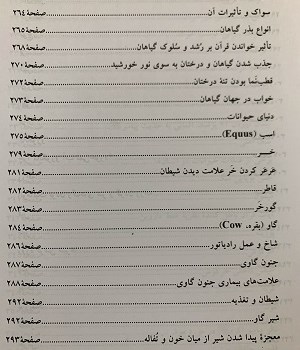 سواک و تأثیرات آن ........ صفحۀ ۲۶۴
انواع بذر گیاهان ........ صفحۀ ۲۶۵
تأثیر خواندن قرآن بر رُشد و سُلوک گیاهان ........ صفحۀ ۲۶۸
جذب شدن گیاهان و درختان به سوی نور خورشید ........ صفحۀ ۲۷۰
قطب‌نُما بودن تنۀ درختان ........ صفحۀ ۲۷۲
خواب در جهان گیاهان ........ صفحۀ ۲۷۳
دنیای حیوانات ........ صفحۀ ۲۷۴
اسب (Equus) ........ صفحۀ ۲۷۵
خـــر ........ صفحۀ ۲۷۹
عَرعَر کردن خَر علامت دیدن شیطان ........ صفحۀ ۲۸۱
قاطر ........ صفحۀ ۲۸۲
گورخَر ........ صفحۀ ۲۸۳
گاو (بقره، Cow) ........ صفحۀ ۲۸۴
شاخ و عمل رادیاتور ........ صفحۀ ۲۸۶
جنون گاوی ........ صفحۀ ۲۸۷
علامت‌های بیماری جنون گاوی ........ صفحۀ ۲۸۸
شیطان و تغذیه ........ صفحۀ ۲۹۲
شیر گاو ........ صفحۀ ۲۹۲
معجزۀ پیدا شدن شیر از میان خون و تُفاله ........ صفحۀ ۲۹۳